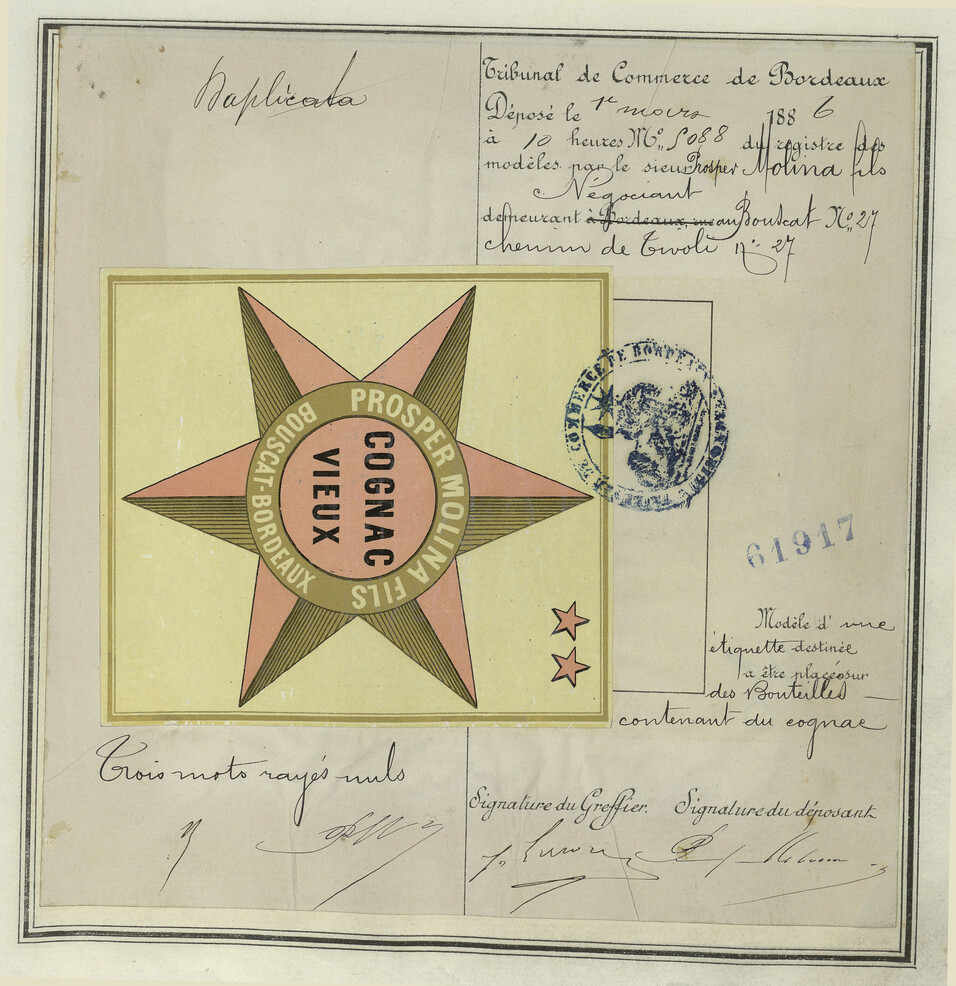 Duplicata
Tribunal de Commerce de Bordeaux
Déposé le 1er mars 1886
à 10 heures No. 5088 du registre des
modèles par le sieur Prosper Molina fils
Négociant
demeurant à Bordeaux, rue au Bouscat No. 27
chemin de Tivoli No. 27
PROSPER MOLINA FILS
BOUSCAT-BORDEAUX
COGNAC
VIEUX
COMMERCE DE BORDEAUX
61917
Modèle d'une
étiquette destinée
a être placée sur
des Bouteilles
contenant du cognac
Trois mots rayés nuls
Signature du Greffier. Signature du déposant